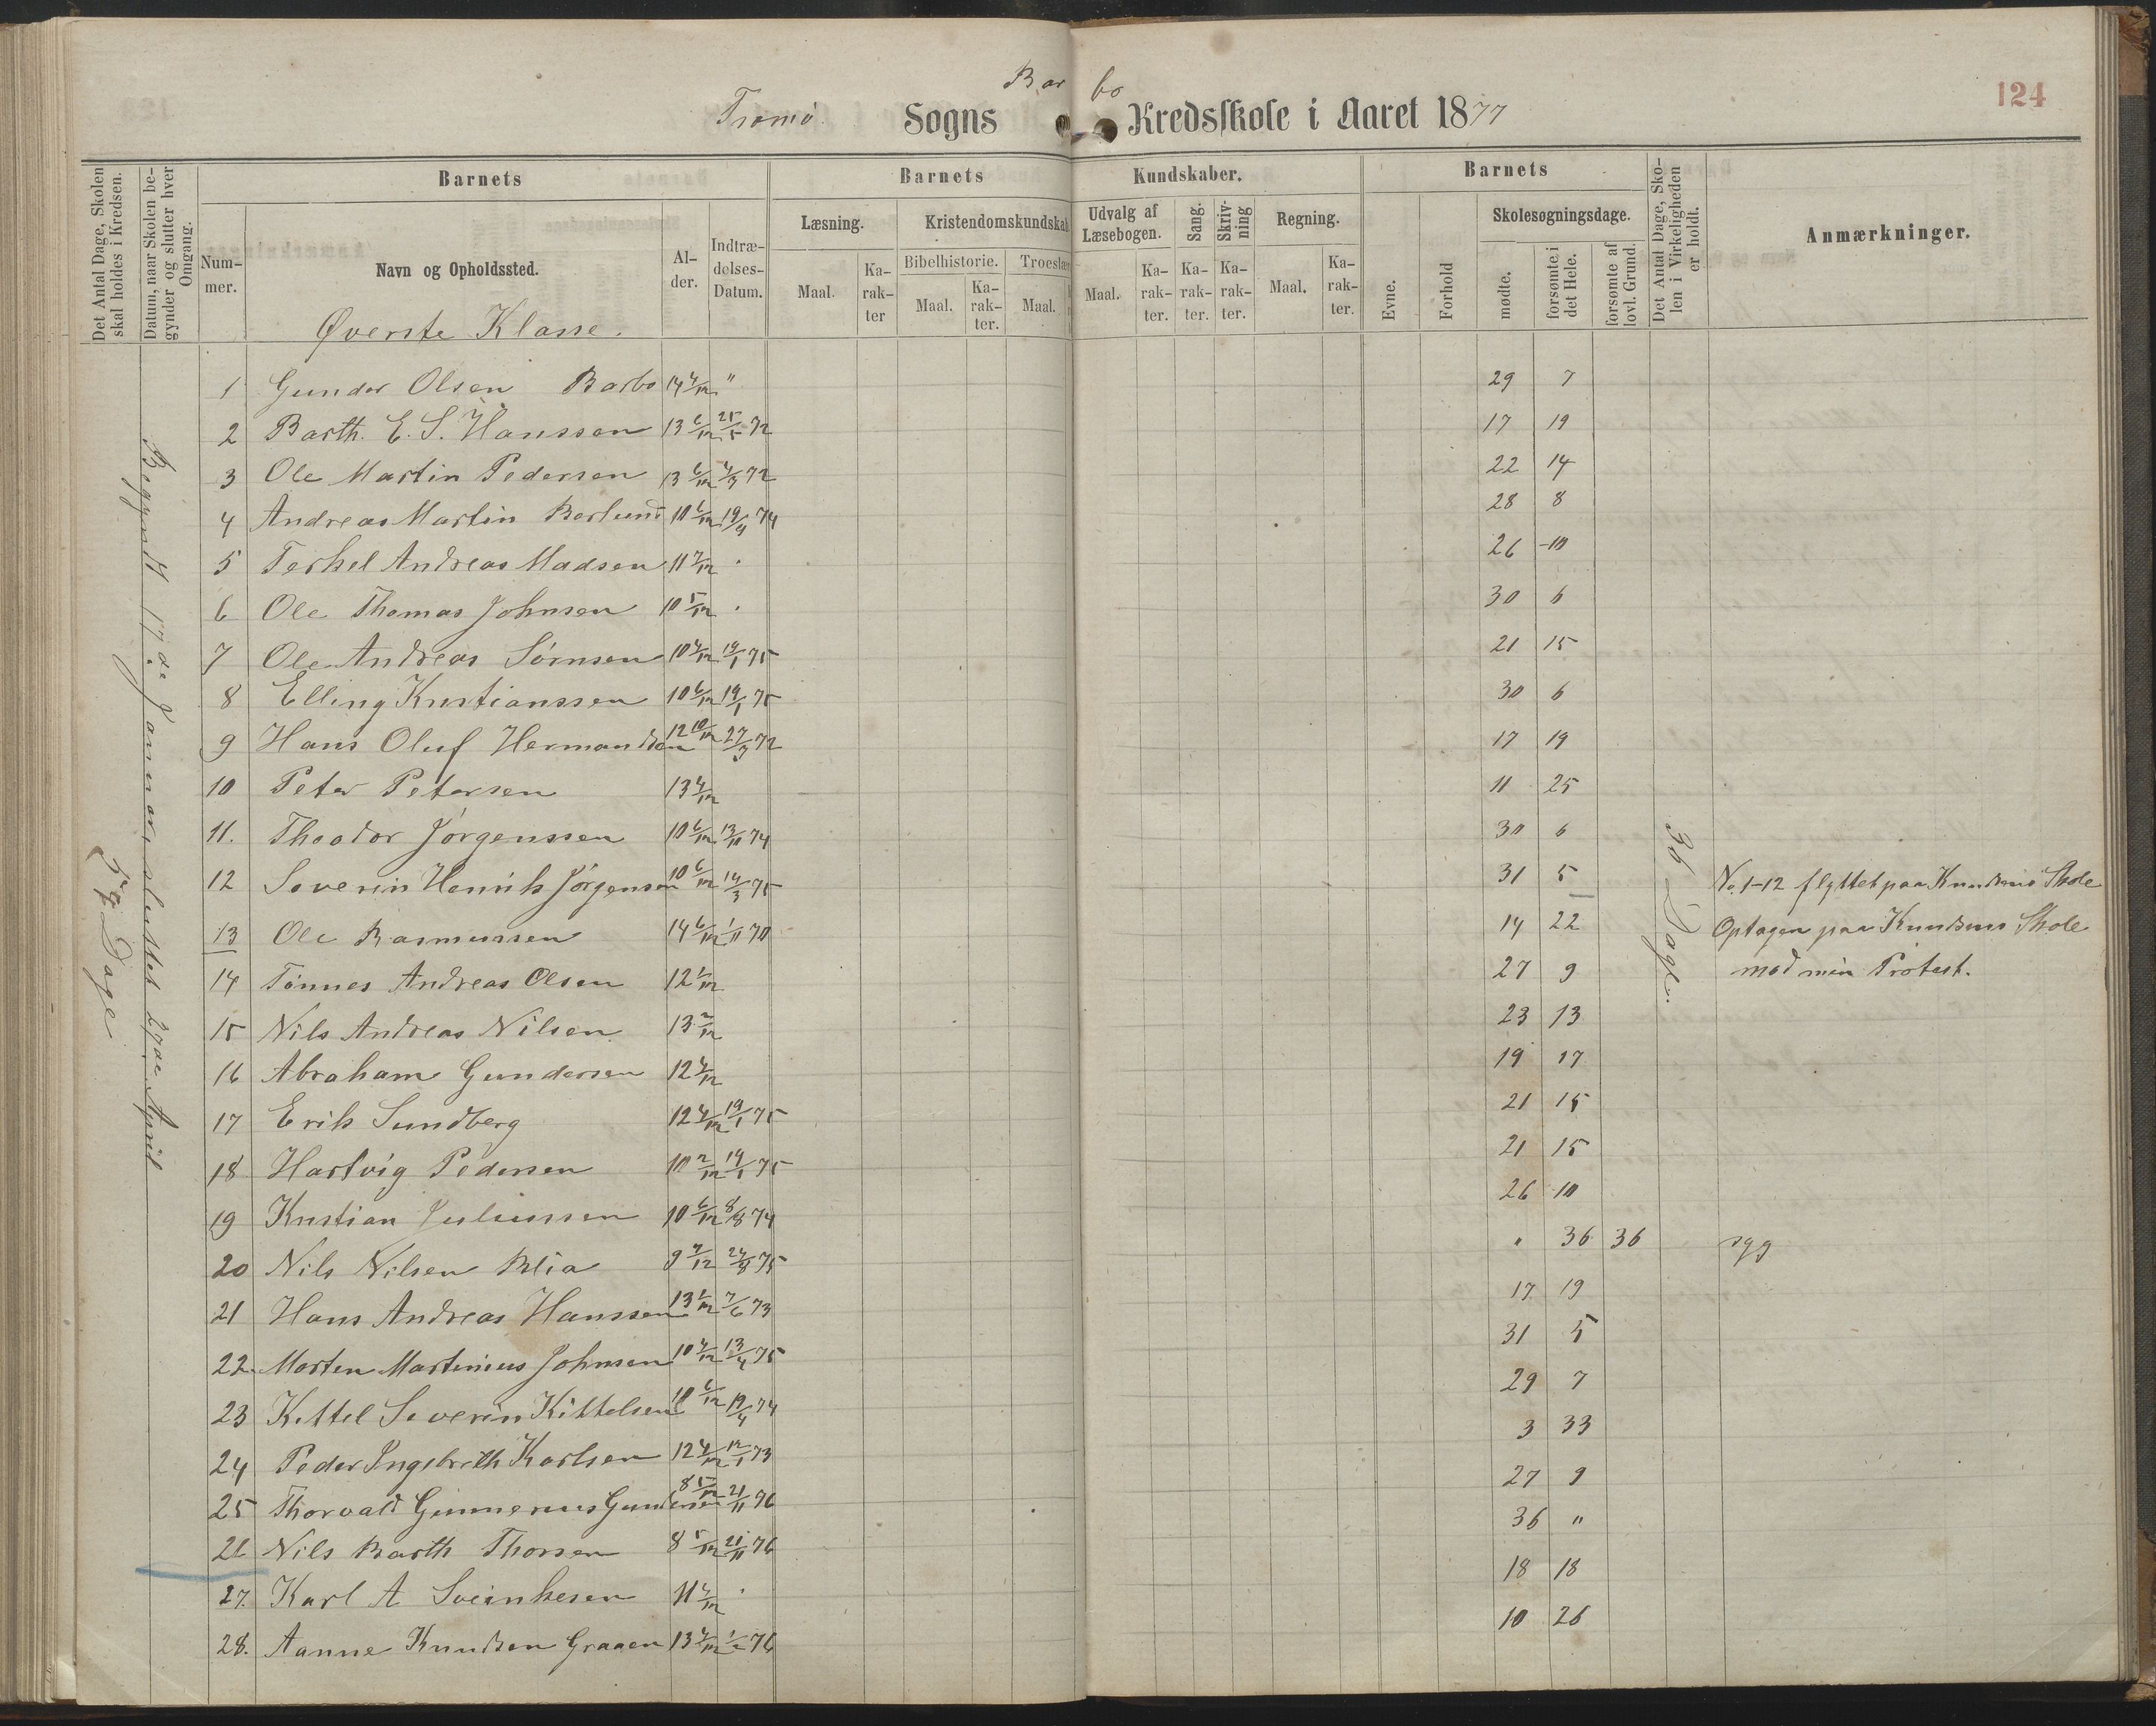 Bar bo
Tromø Sogns Kredsskole i Aaret 1877
124
Det Antal Dage, Skolen skal holdes i Kredsen.
Datum, naar Skolen begynder og slutter hver Omgang.
Barnets
Barnets Kundskaber.
Barnets
Det Antal Dage, Skolen i Virkeligheden er holdt.
Anmærkninger.
Nummer.
Navn og Opholdssted.
Alder.
Indtrædelses-Datum.
Læsning.
Kristendomskundskab
Udvalg af Læsebogen.
Sang.
Skrivning
Regning.
Evne.
Forhold
Skolesøgningsdage.
Bibelhistorie.
Troeslær
Maal.
Karakter
Maal.
Karakter.
Maal.
Maal.
Karakter.
Karakter.
Karakter.
Maal.
Karakter.
mødte.
forsømte i det Hele.
forsømte af lovl. Grund.
Øverste Klasse.
Begyndt 17de Januar, sluttet 27de April
Dage
36 Dage.
1 Gunder Olsen Barbo 14 4/12 " 29 7
2 Barth. E. S. Hanssen 13 6/12 25/5 72 17 19
3 Ole Martin Pedersen 13 6/12 4/3 72 22 14
4 Andreas Martin Berlund 10 6/12 19/4 74 28 8
5 Terkel Andreas Madsen 11 7/12 . 26 10
6 Ole Thomas Johnsen 10 5/12 . 30 6
7 Ole Andreas Sørnsen 10 4/12 19/1 75 21 15
8 Elling Kristianssen 10 6/12 19/1 75 30 6
9 Hans Oluf Hermandsen 12 10/12 27/3 72 17 19
10 Peter Petersen 13 4/12 11 25
11. Theodor Jørgenssen 10 6/12 13/11 74 30 6
12 Severin Henrik Jørgensen 10 6/12 14/3 75 31 5 No. 1-12 flyttet paa Knudsens Skole
13 Ole Rasmussen 14 6/12 1/11 70 14 22 Optagen paa Knudsens Skole
14 Tønnes Andreas Olsen 12 1/12 27 9 mod min Protest.
15 Nils Andreas Nilsen 13 2/12 23 13
16 Abraham Gundersen 12 4/12 19 17
17 Erik Sundberg 12 4/12 19/1 75 21 15
18 Hartvig Pedersen 10 2/12 19/1 75 21 15
19 Kristian Juliussen 10 6/12 8/8 74 26 10
20 Nils Nilsen Blia 9 7/12 24/8 75 " 36 36 syg
21 Hans Andreas Hanssen 13 1/12 7/6 73 17 19
22. Morten Martinius Johnsen 10 4/12 13/4 75 31 5
23 Kittel Severin Kittelsen 10 6/12 19/4 74 29 7
24 Peder Ingebreth Karlsen 12 4/12 12/1 73 3 33
25 Thorvald Gunnerius Gundersen 8 5/12 21/11 76 27 9
26 Nils Barth Thorsen 8 5/12 21/11 76 36 "
27. Karl A Sveinkesen 11 4/12 . 18 18
28. Aanne Knudsen Graaen 13 4/12 76 10 26